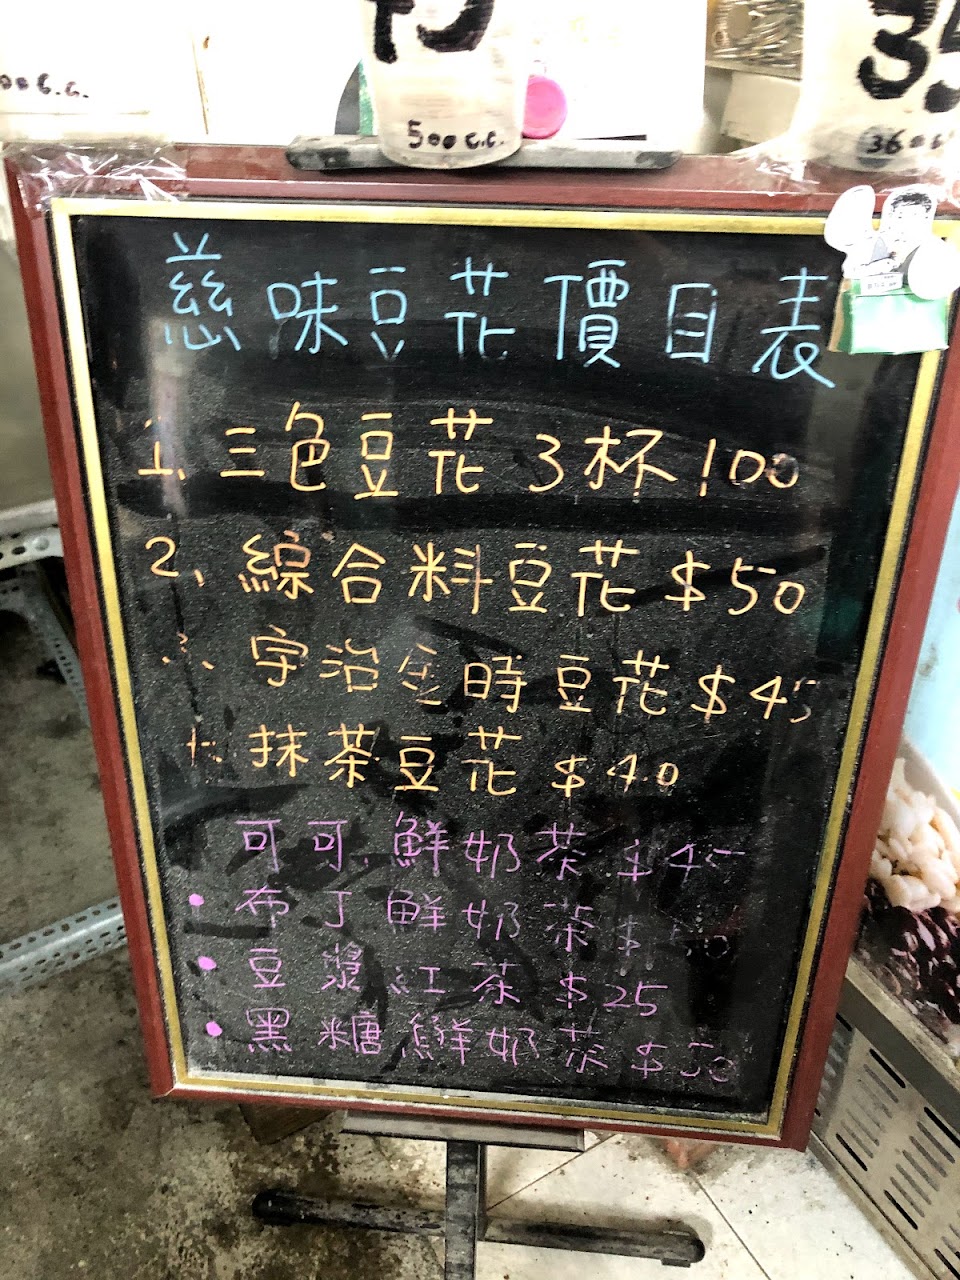 500c.c.
35
360c.c
慈味豆花價目表
1、三色豆花3杯100
2、綜合料豆花$50
宇治金時豆花$45
抹茶豆花$40
可可鮮奶茶$45
•布丁鮮奶茶$50
•豆漿紅茶$25
•黑糖鮮奶茶$50